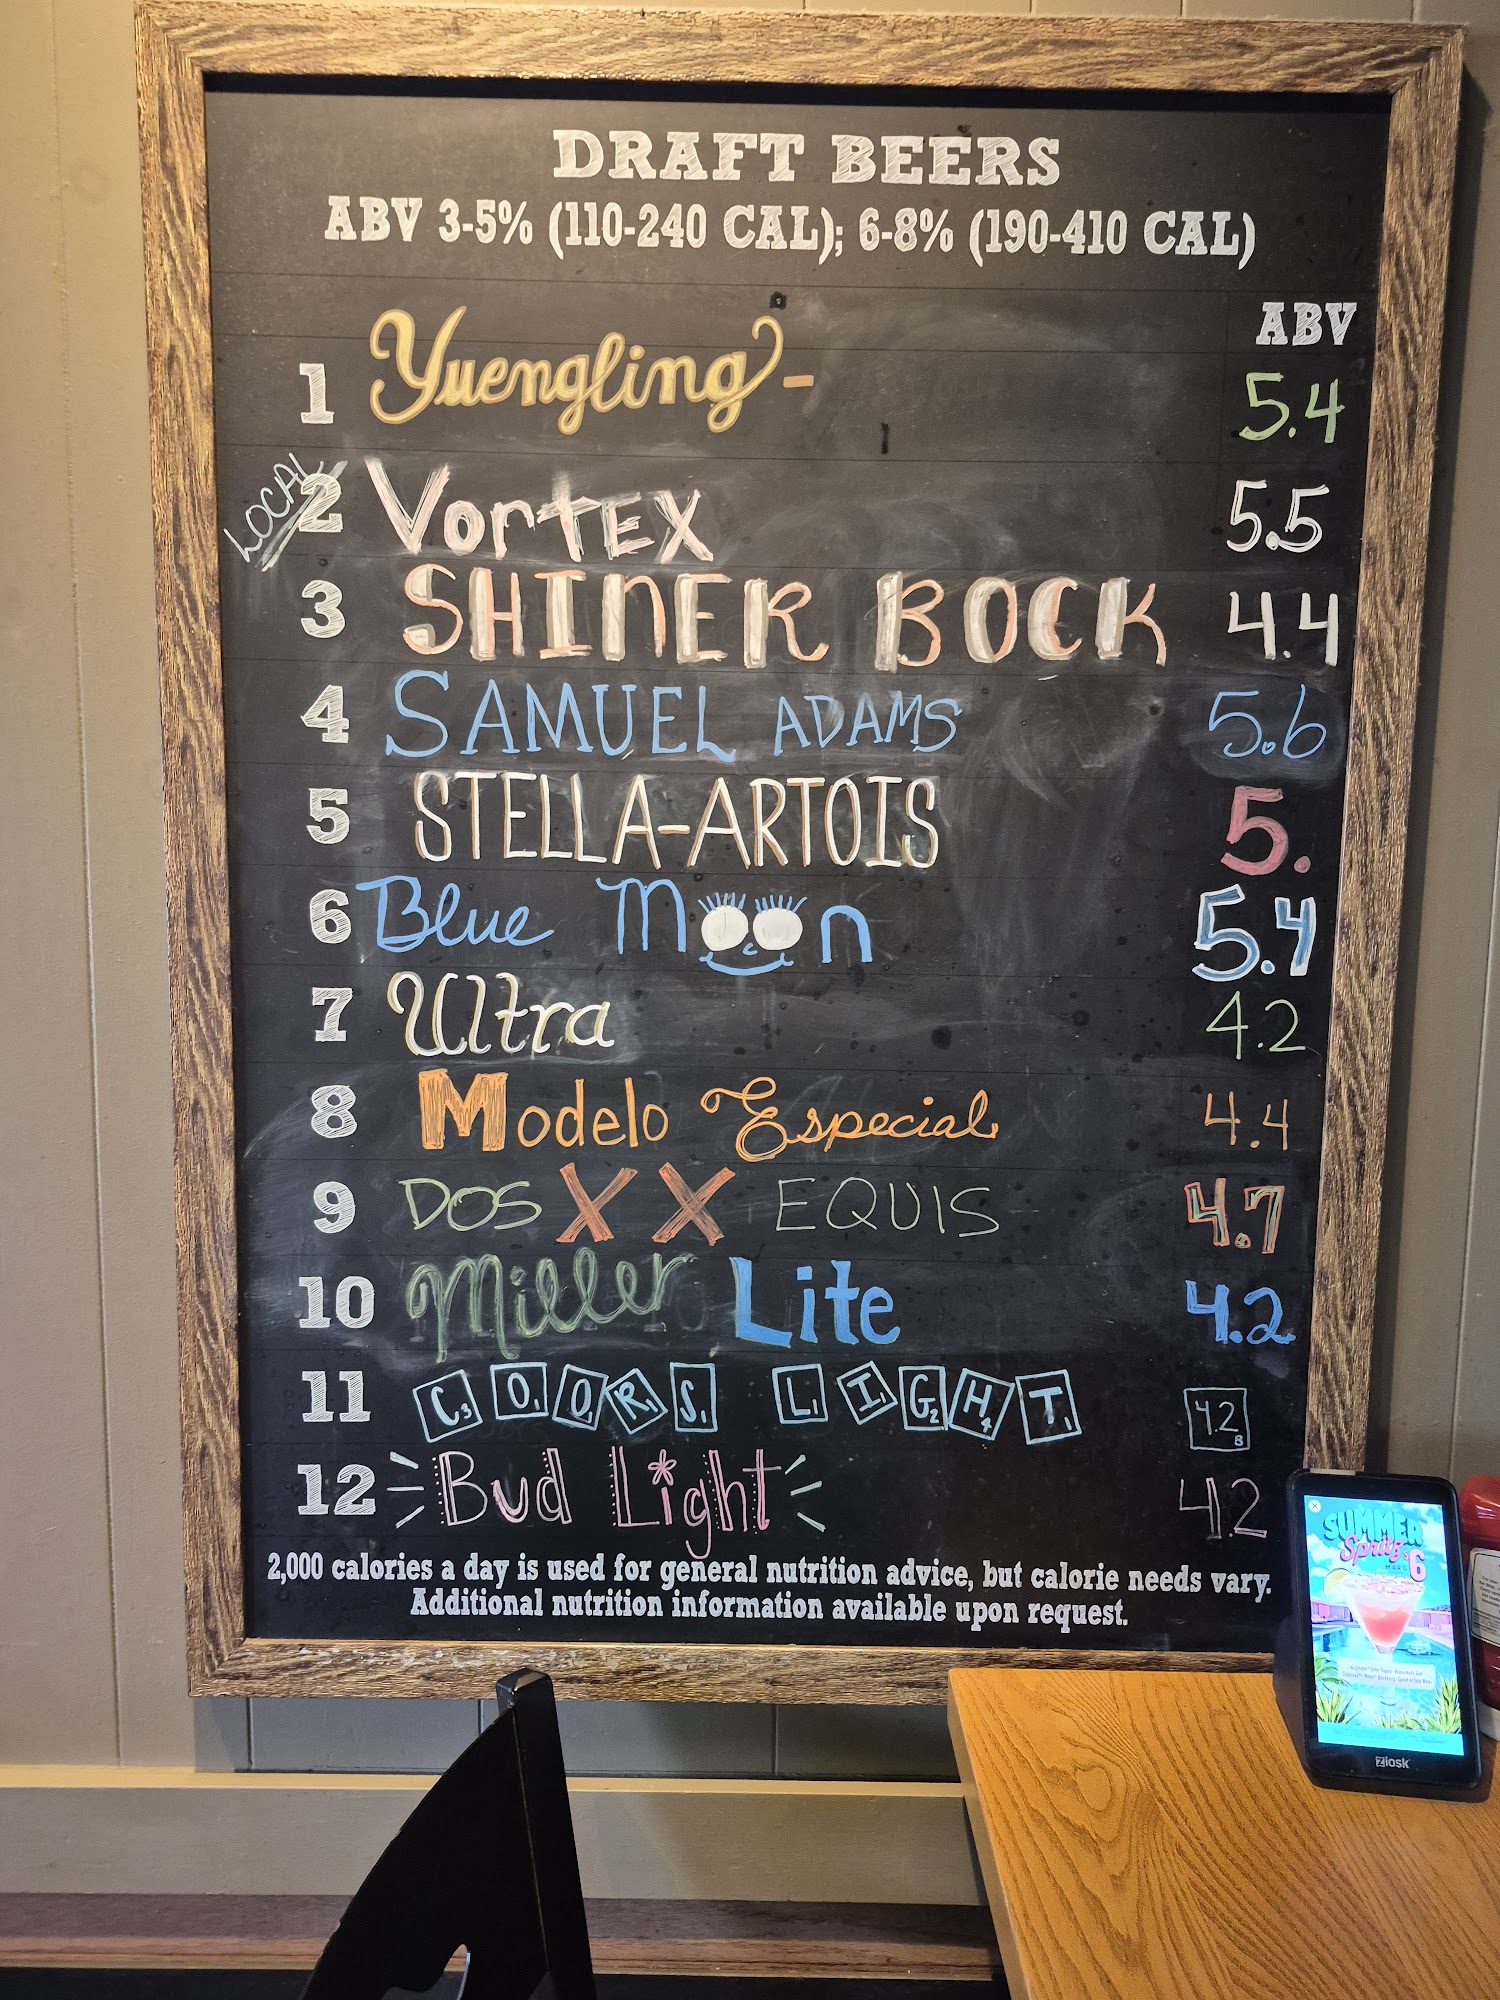 DRAFT BEERS
ABV 3-5% (110-240 CAL); 6-8% (190-410 CAL)
ABV
1 Yuengling - 5.4
LOCAL 2 Vortex 5.5
3 SHINER BOCK 4.4
4 SAMUEL ADAMS 5.6
5 STELLA-ARTOIS 5.
6 Blue Moon 5.4
7 Ultra 4.2
8 Modelo Especial 4.4
9 DOS XX EQUIS 4.7
10 Miller Lite 4.2
11 COORS LIGHT 4.2
12 Bud Light 4.2
2,000 calories a day is used for general nutrition advice, but calorie needs vary.
Additional nutrition information available upon request.
SUMMER
Spritz $6
MARG
Ziosk